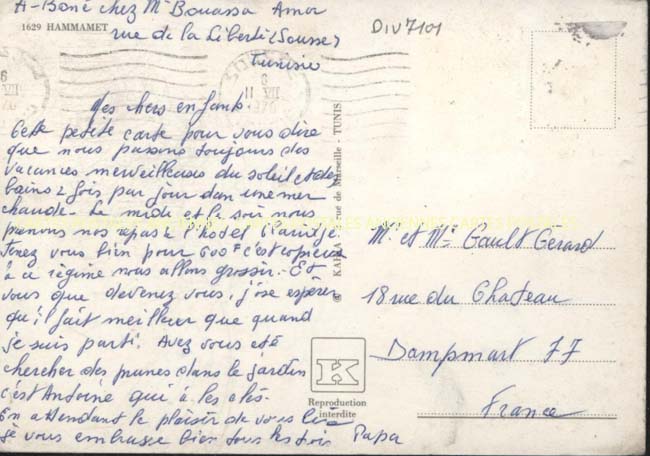 A-Boné chez Mr Bouassa Amor
1629 HAMMAMET
rue de la Liberté (Sousse)
Tunisie
DIV7101
Mes chers enfants.
Cette petite carte pour vous dire
que nous passons toujours des
vacances merveilleuses du soleil et des
bains 2 fois par jour dan une mer
chaude. Le midi et le soir nous
prenons nos repas à l'hotel Claridje
Tenez vous bien pour 600F c'est copieux
à ce régime nous allons grossir. Et
vous que devenez vous, j'ose espérer
qu'il fait meilleur que quand
je suis parti. Avez vous été
chercher des prunes dans le jardin
c'est Antoine qui à les clés.
En attendant le plaisir de vous lire
je vous embrasse bien tous les trois Papa
© KAHIA rue de Marseille - TUNIS
K
Reproduction
interdite
Mr et Me Gault Gérard
18 rue du Chateau
Dampmart 77
France